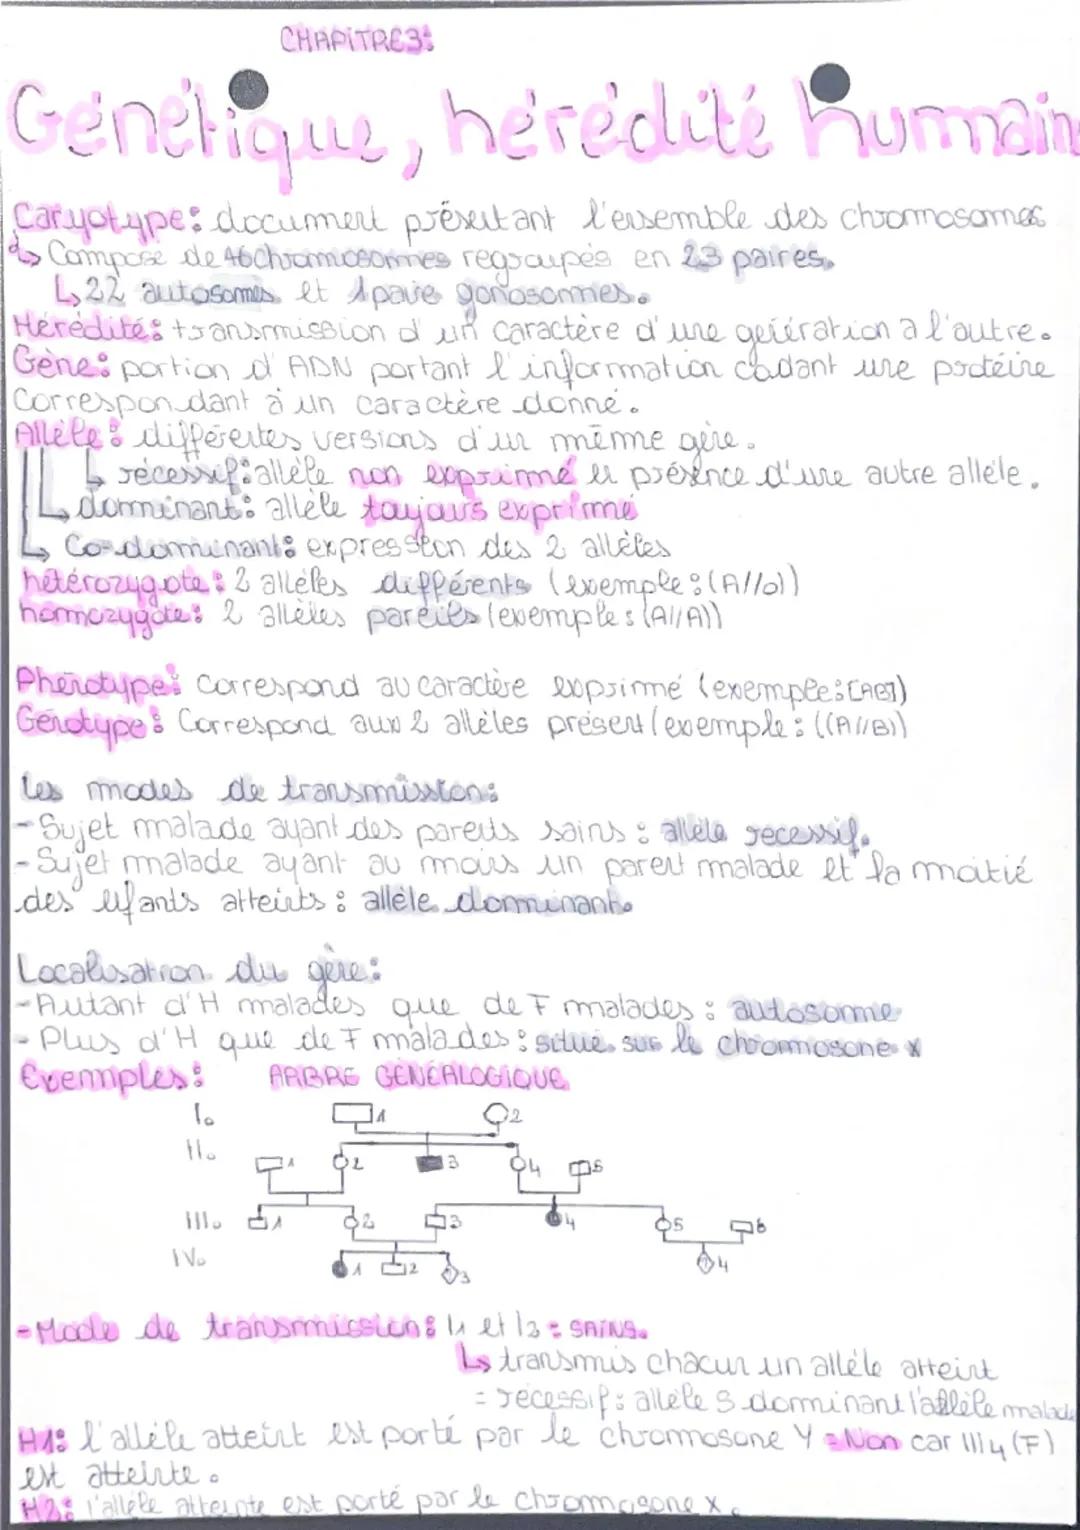 CHAPITRE3:
Génétique, hérédité humain
Caryotype: document présentant l'ensemble des chromosomes
↳ Composé de 46 Chromosomes regroupés en 23 paires.
↳ 22 autosomes et 1 paire gonosomes.
Hérédité: transmission d'un caractère d'une génération à l'autre.
Gène: portion d'ADN portant l'information codant une protéine
Correspondant à un caractère donné.
Allèle: différentes versions d'un même gène.
↳ récessif: allèle non exprimé en présence d'une autre allèle.
↳ dominant: allèle toujours exprimé
↳ Co-dominant: expression des 2 allèles
hétérozygote: 2 allèles différents (exemple: (A//O))
homozygote: 2 allèles pareils (exemple: (A//A))
Phénotype: Correspond au caractère exprimé (exemple: [AB])
Génotype: Correspond aux 2 allèles présent (exemple: ((A//B))
Les modes de transmission:
- Sujet malade ayant des parents sains: allèle récessif.
- Sujet malade ayant au moins un parent malade et la moitié
des enfants atteints: allèle dominant.
Localisation du gène:
- Autant d'H malades que de F malades: autosome
- Plus d'H que de F malades: situé sur le chromosone X
Exemples: ARBRE GÉNÉALOGIQUE
I. 1 2
II. 1 2 3 4 5
III. 1 2 3 4 5 6
IV. 1 2 3 4
- Mode de transmission: I1 et I2: SAINS.
↳ transmis chacun un allèle atteint
= récessif: allèle S dominant l'allèle malade
H1: l'allèle atteint est porté par le chromosone Y = Non car III4 (F)
est atteinte.
H2: l'allèle atteinte est porté par le chromosone X.